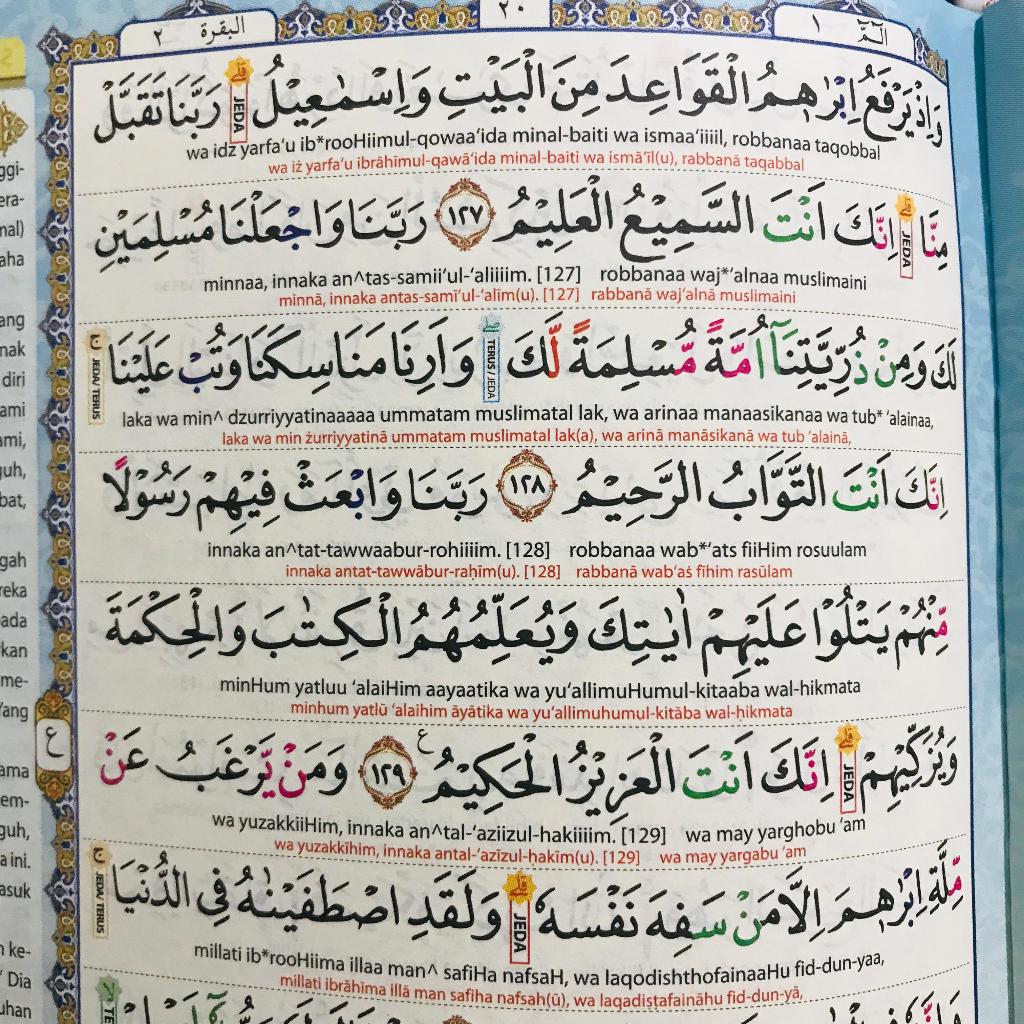 الۤمّۤ ١
٢٠
البقرة ٢
وَاِذْ يَرْفَعُ اِبْرٰهٖمُ الْقَوَاعِدَ مِنَ الْبَيْتِ وَاِسْمٰعِيْلُۗ JEDA رَبَّنَا تَقَبَّلْ
wa idz yarfa'u ib*rooHiimul-qowaa'ida minal-baiti wa ismaa'iiiil, robbanaa taqobbal
wa iż yarfa'u ibrāhīmul-qawā'ida minal-baiti wa ismā'īl(u), rabbanā taqabbal
مِنَّاۗ JEDA اِنَّكَ اَنْتَ السَّمِيْعُ الْعَلِيْمُ ١٢٧ رَبَّنَا وَاجْعَلْنَا مُسْلِمَيْنِ
minnaa, innaka an^tas-samii'ul-'aliiiim. [127] robbanaa waj*'alnaa muslimaini
minnā, innaka antas-samī'ul-'alīm(u). [127] rabbanā waj'alnā muslimaini
لَكَ وَمِنْ ذُرِّيَّتِنَآ اُمَّةً مُّسْلِمَةً لَّكَۖ TERUS / JEDA وَاَرِنَا مَنَاسِكَنَا وَتُبْ عَلَيْنَاۚ JEDA/ TERUS
laka wa min^ dzurriyyatinaaaaa ummatam muslimatal lak, wa arinaa manaasikanaa wa tub* 'alainaa,
laka wa min żurriyyatinā ummatam muslimatal lak(a), wa arinā manāsikanā wa tub 'alainā,
اِنَّكَ اَنْتَ التَّوَّابُ الرَّحِيْمُ ١٢٨ رَبَّنَا وَابْعَثْ فِيْهِمْ رَسُوْلًا
innaka an^tat-tawwaabur-rohiiiim. [128] robbanaa wab*'ats fiiHim rosuulam
innaka antat-tawwābur-raḥīm(u). [128] rabbanā wab'aṡ fīhim rasūlam
مِّنْهُمْ يَتْلُوْا عَلَيْهِمْ اٰيٰتِكَ وَيُعَلِّمُهُمُ الْكِتٰبَ وَالْحِكْمَةَ
minHum yatluu 'alaiHim aayaatika wa yu'allimuHumul-kitaaba wal-hikmata
minhum yatlū 'alaihim āyātika wa yu'allimuhumul-kitāba wal-ḥikmata
ع
وَيُزَكِّيْهِمْۗ JEDA اِنَّكَ اَنْتَ الْعَزِيْزُ الْحَكِيْمُ ࣖ ١٢٩ وَمَنْ يَّرْغَبُ عَنْ
wa yuzakkiiHim, innaka an^tal-'aziizul-hakiiiim. [129] wa may yarghobu 'am
wa yuzakkīhim, innaka antal-'azīzul-ḥakīm(u). [129] wa may yargabu 'am
مِّلَّةِ اِبْرٰهٖمَ اِلَّا مَنْ سَفِهَ نَفْسَهٗۗ JEDA وَلَقَدِ اصْطَفَيْنٰهُ فِى الدُّنْيَاۚ JEDA/ TERUS
millati ib*rooHiima illaa man^ safiHa nafsaH, wa laqodishthofainaaHu fid-dun-yaa,
millati ibrāhīma illā man safiha nafsah(ū), wa laqadiṣṭafaināhu fid-dun-yā,